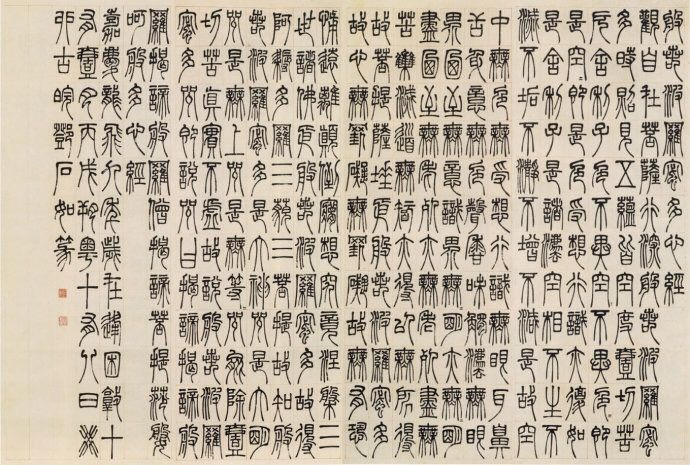 般若波羅蜜多心經
觀自在菩薩行深般若波羅蜜
多時照見五蘊皆空度一切苦
厄舍利子色不異空不異色即
是空即是色受想行識亦復如
是舍利子是諸法空相不生不
滅不垢不淨不增不減是故空
中無色無受想行識無眼耳鼻
舌身意無色聲香味觸法無眼
界乃至無意識界無明亦無明
盡乃至無老死亦無老死盡無
苦集滅道無智亦得以無所得
故菩提薩埵依般若波羅蜜多
故心無罣礙無罣礙故無有恐
怖遠離顛倒夢想究竟涅槃三
世諸佛依般若波羅蜜多故得
阿耨多羅三藐三菩提故知般
若波羅蜜多是大神咒是大明
咒是無上咒是無等咒能除一
切苦真實不虛故說般若波羅
蜜多咒即說咒曰揭諦揭諦般
羅揭諦般羅僧揭諦菩提薩婆
呵般心經
嘉慶龍飛九年歲在逢困敦十
有一月丙戌朔粵十有八日癸
卯古皖鄧石如篆